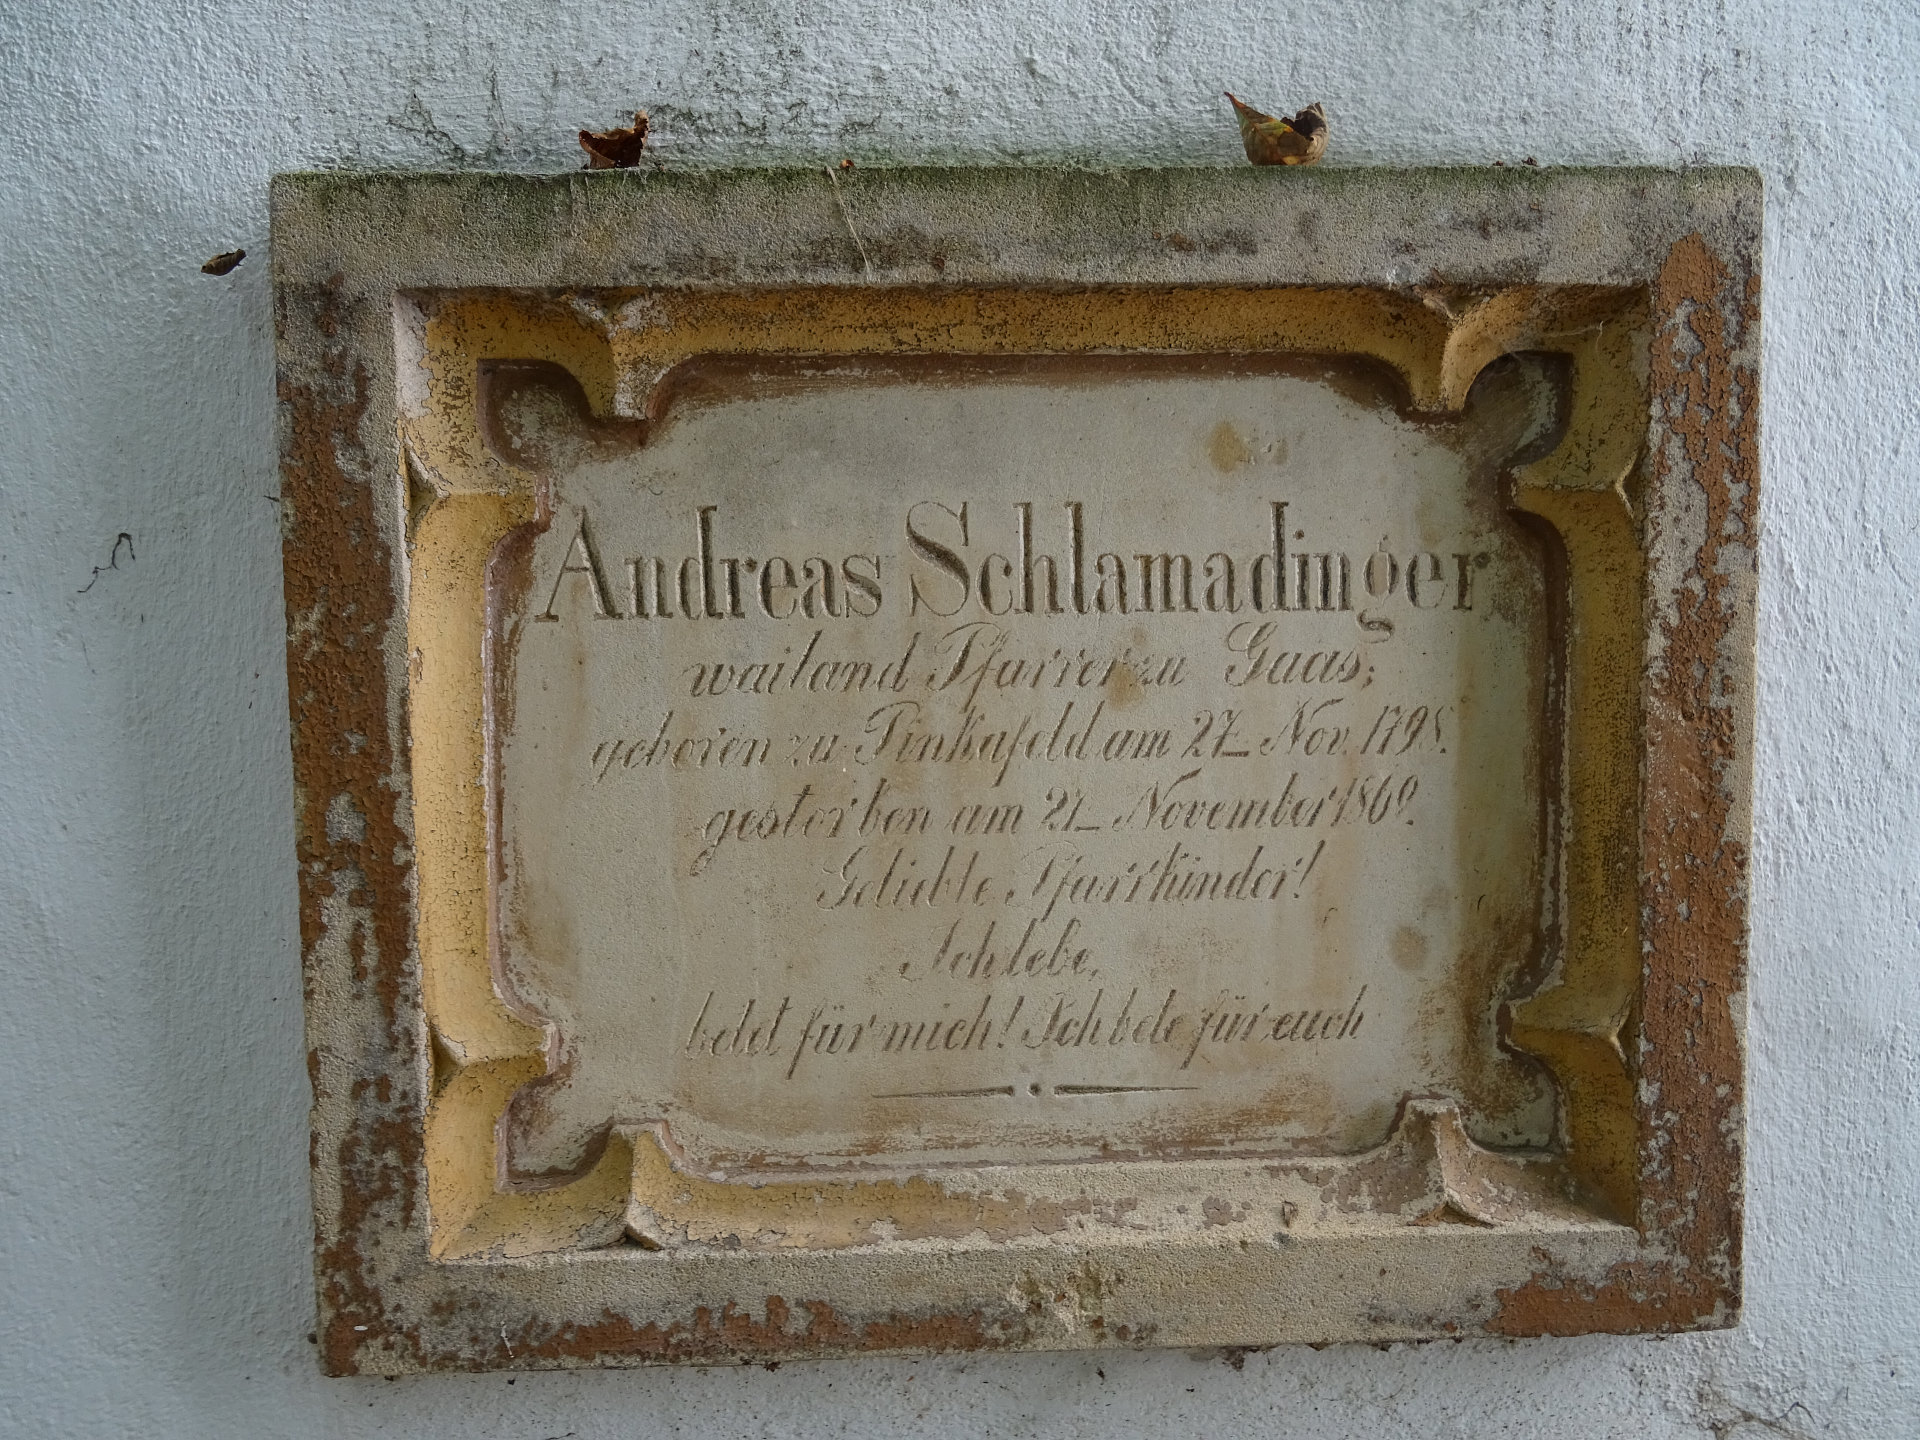 Andreas Schlamadinger
weiland Pfarrer zu Gaas;
geboren zu Pinkafeld am 27_ Nov. 1798.
gestorben am 21_ November 1869.
Geliebte Pfarrkinder!
Ich lebe,
betet für mich! Ich bete für euch